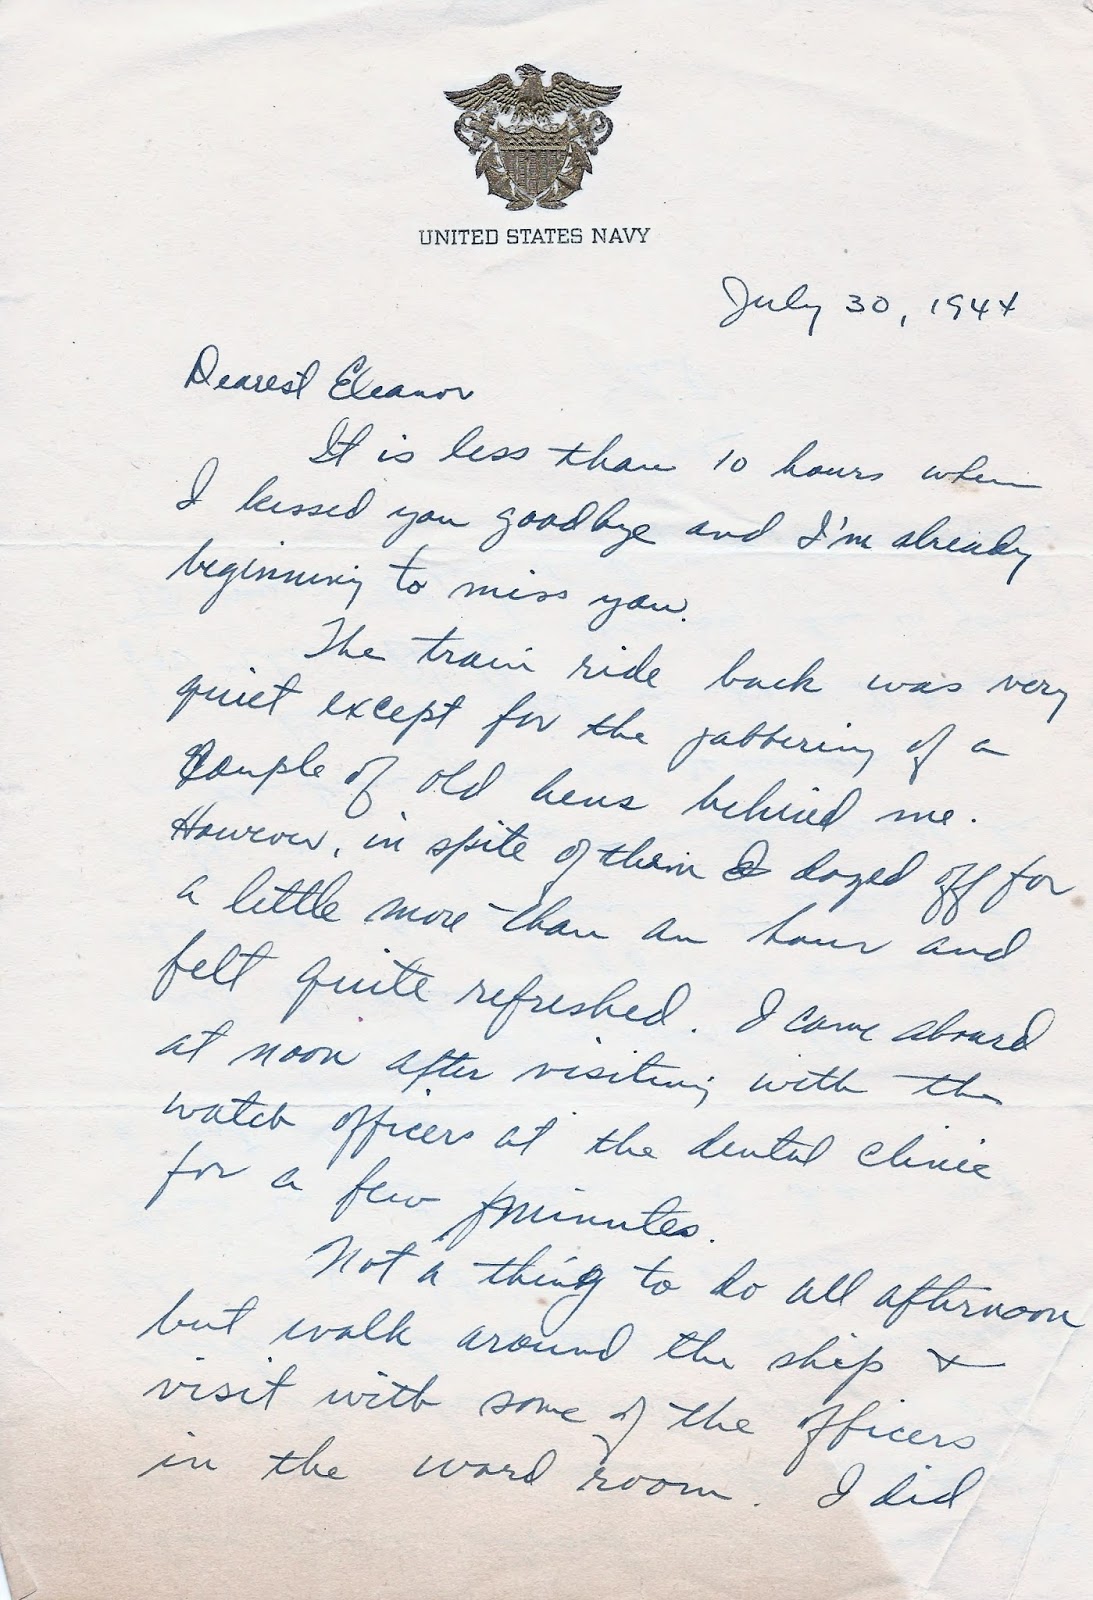 UNITED STATES NAVY
July 30, 1944
Dearest Eleanor
It is less than 10 hours when
I kissed you goodbye and I'm already
beginning to miss you.
The train ride back was very
quiet except for the jabbering of a
couple of old hens behind me.
However, in spite of them I dozed off for
a little more than an hour and
felt quite refreshed. I came aboard
at noon after visiting with the
watch officers at the dental clinic
for a few minutes.
Not a thing to do all afternoon
but walk around the ship &
visit with some of the officers
in the ward room. I did